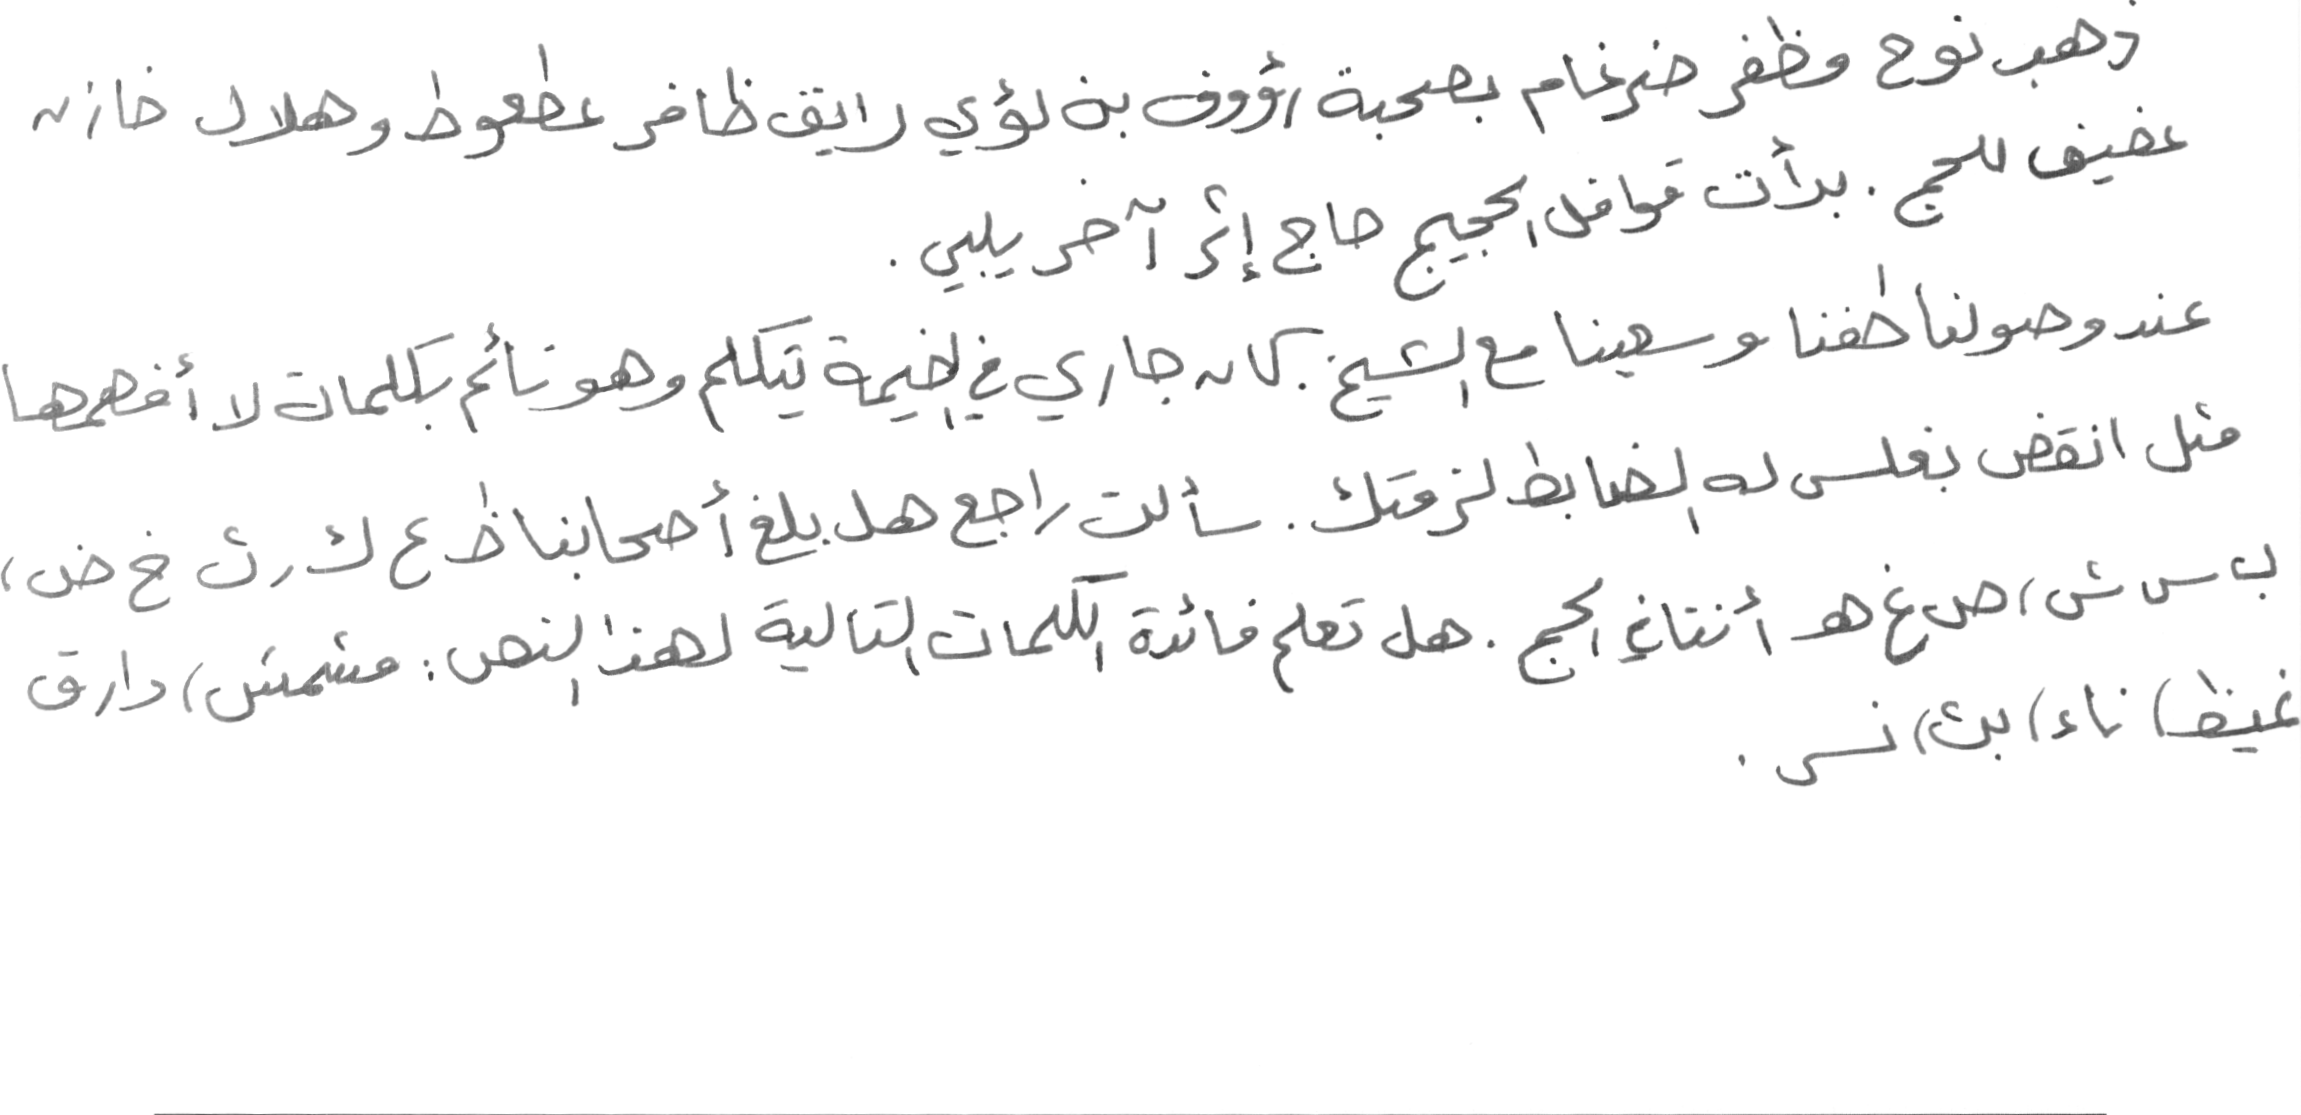 ذهب نوح مظفر ضرغام بصحبة رؤوف بن لؤي رايق ظافر عطعوط وهلال خازن
عفيف للحج. بدأت قوافل الحجيج حاج إثر آخر يلبي.
عند وصولنا طفنا وسعينا مع الشيخ. كان جاري في الخيمة يتكلم وهو نائم بكلمات لا أفهمها
مثل انقض بغلس له الضابط لزمتك. سألت راجع هل بلغ أصحابنا ظ ع ك ر ث خ ض،
ب س ش، ص غ هو أنتاغ الحج. هل تعلم فائدة الكلمات التالية لهذا النص: مشمش، دارق
غيظ، ناء، بث، نس.